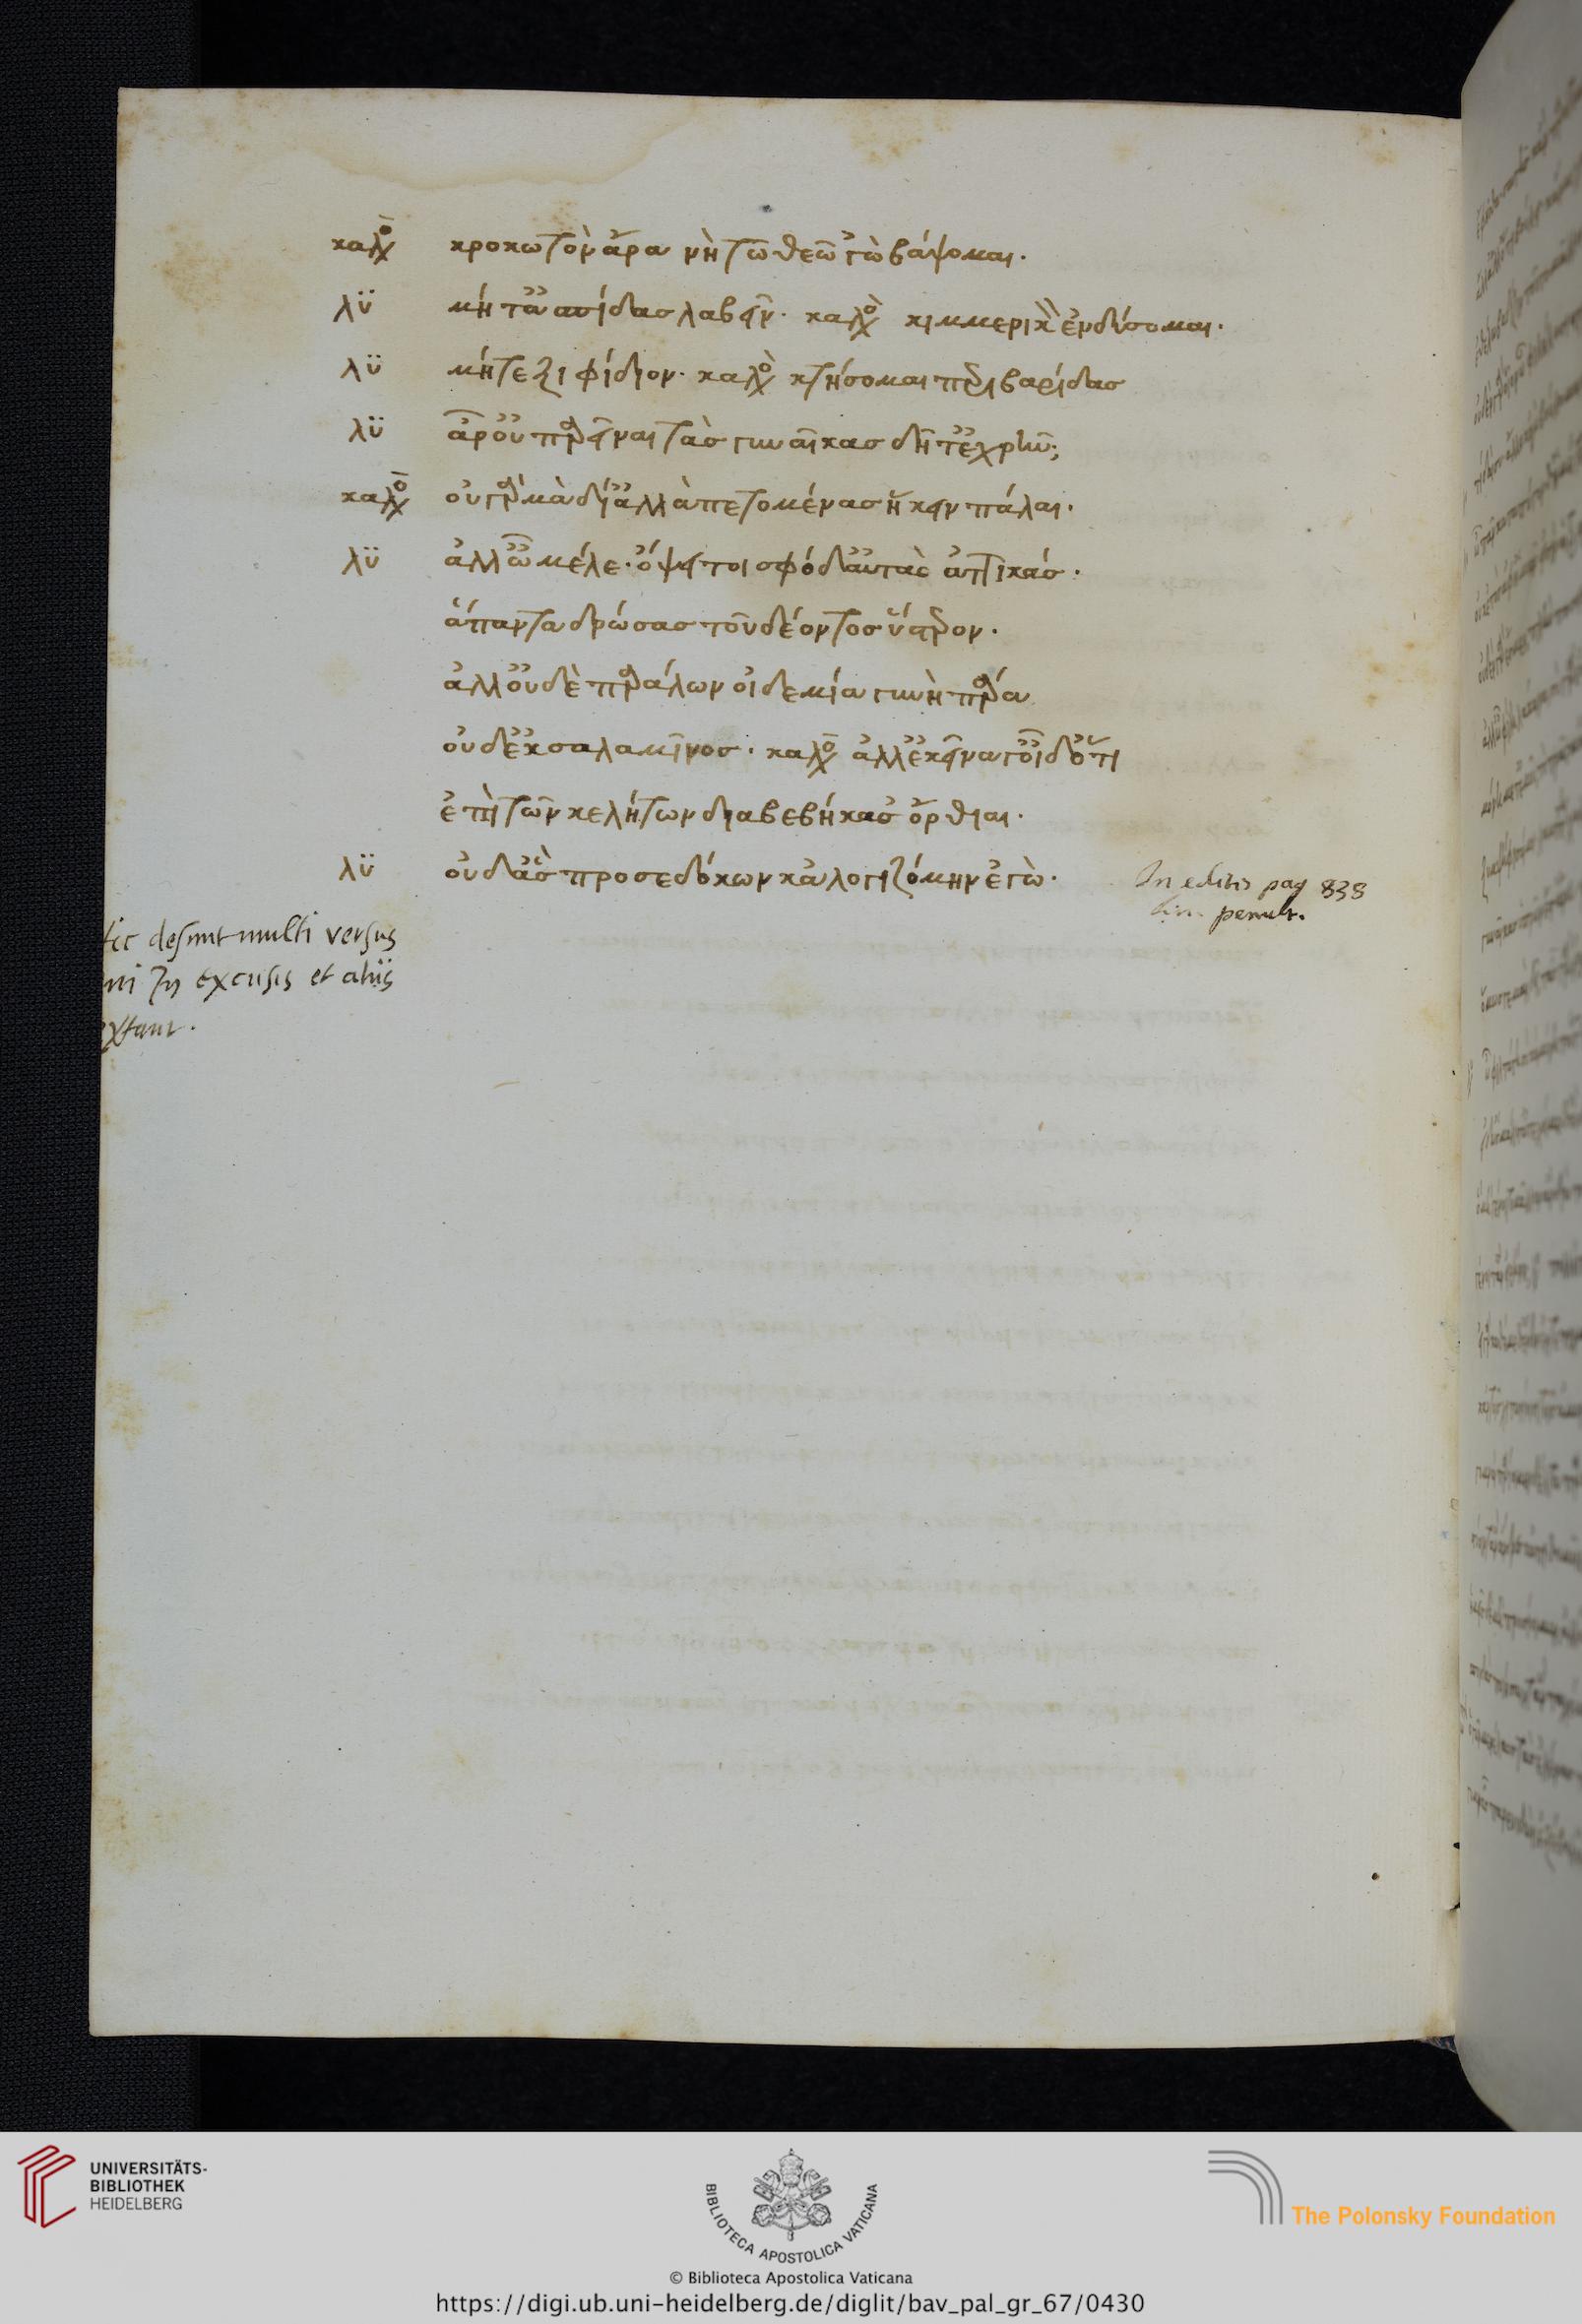 καλο κροκωτὸν ἄρα νὴ τὼ θεὼ ᾿γὼ βάψομαι·
λυ μήτ᾿ ἀσπίδας λαβεῖν· καλο κιμμερίκ᾿ ἐνδύσομαι·
λυ μήτε ξιφίδιον· καλο κτήσομαι περιβαρίδας
λυ ἆρ᾿ οὐ παρεῖναι τὰς γυναῖκας δῆτ᾿ ἐχρῆν;
καλο οὐ γὰρ μὰ δί᾿ ἀλλὰ πετομένας ἥκειν πάλαι·
λυ ἀλλ᾿ ὦ μέλε· ὄψει τοι σφόδ᾿ αὐτὰς ἀττικάς·
ἅπαντα δρώσας τοῦ δέοντος ὕστερον·
ἀλλ᾿ οὐδὲ παράλων οὐδεμία γυνὴ πάρα
οὐδ᾿ ἐκ σαλαμῖνος· καλο ἀλλ᾿ ἐκεῖναι γ᾿ οἶδ᾿ ὅτι
ἐπὶ τῶν κελήτων διαβεβήκασ᾿ ὄρθιαι·
λυ οὐδ᾿ ἃς προσεδόκων κἀλογιζόμην ἐγὼ·
In editis pag 838
lin. penult.
hic desunt multi versus
qui in excusis et aliis
extant.
UNIVERSITÄTS-
BIBLIOTHEK
HEIDELBERG
BIBLIOTECA APOSTOLICA VATICANA
The Polonsky Foundation
© Biblioteca Apostolica Vaticana
https://digi.ub.uni-heidelberg.de/diglit/bav_pal_gr_67/0430